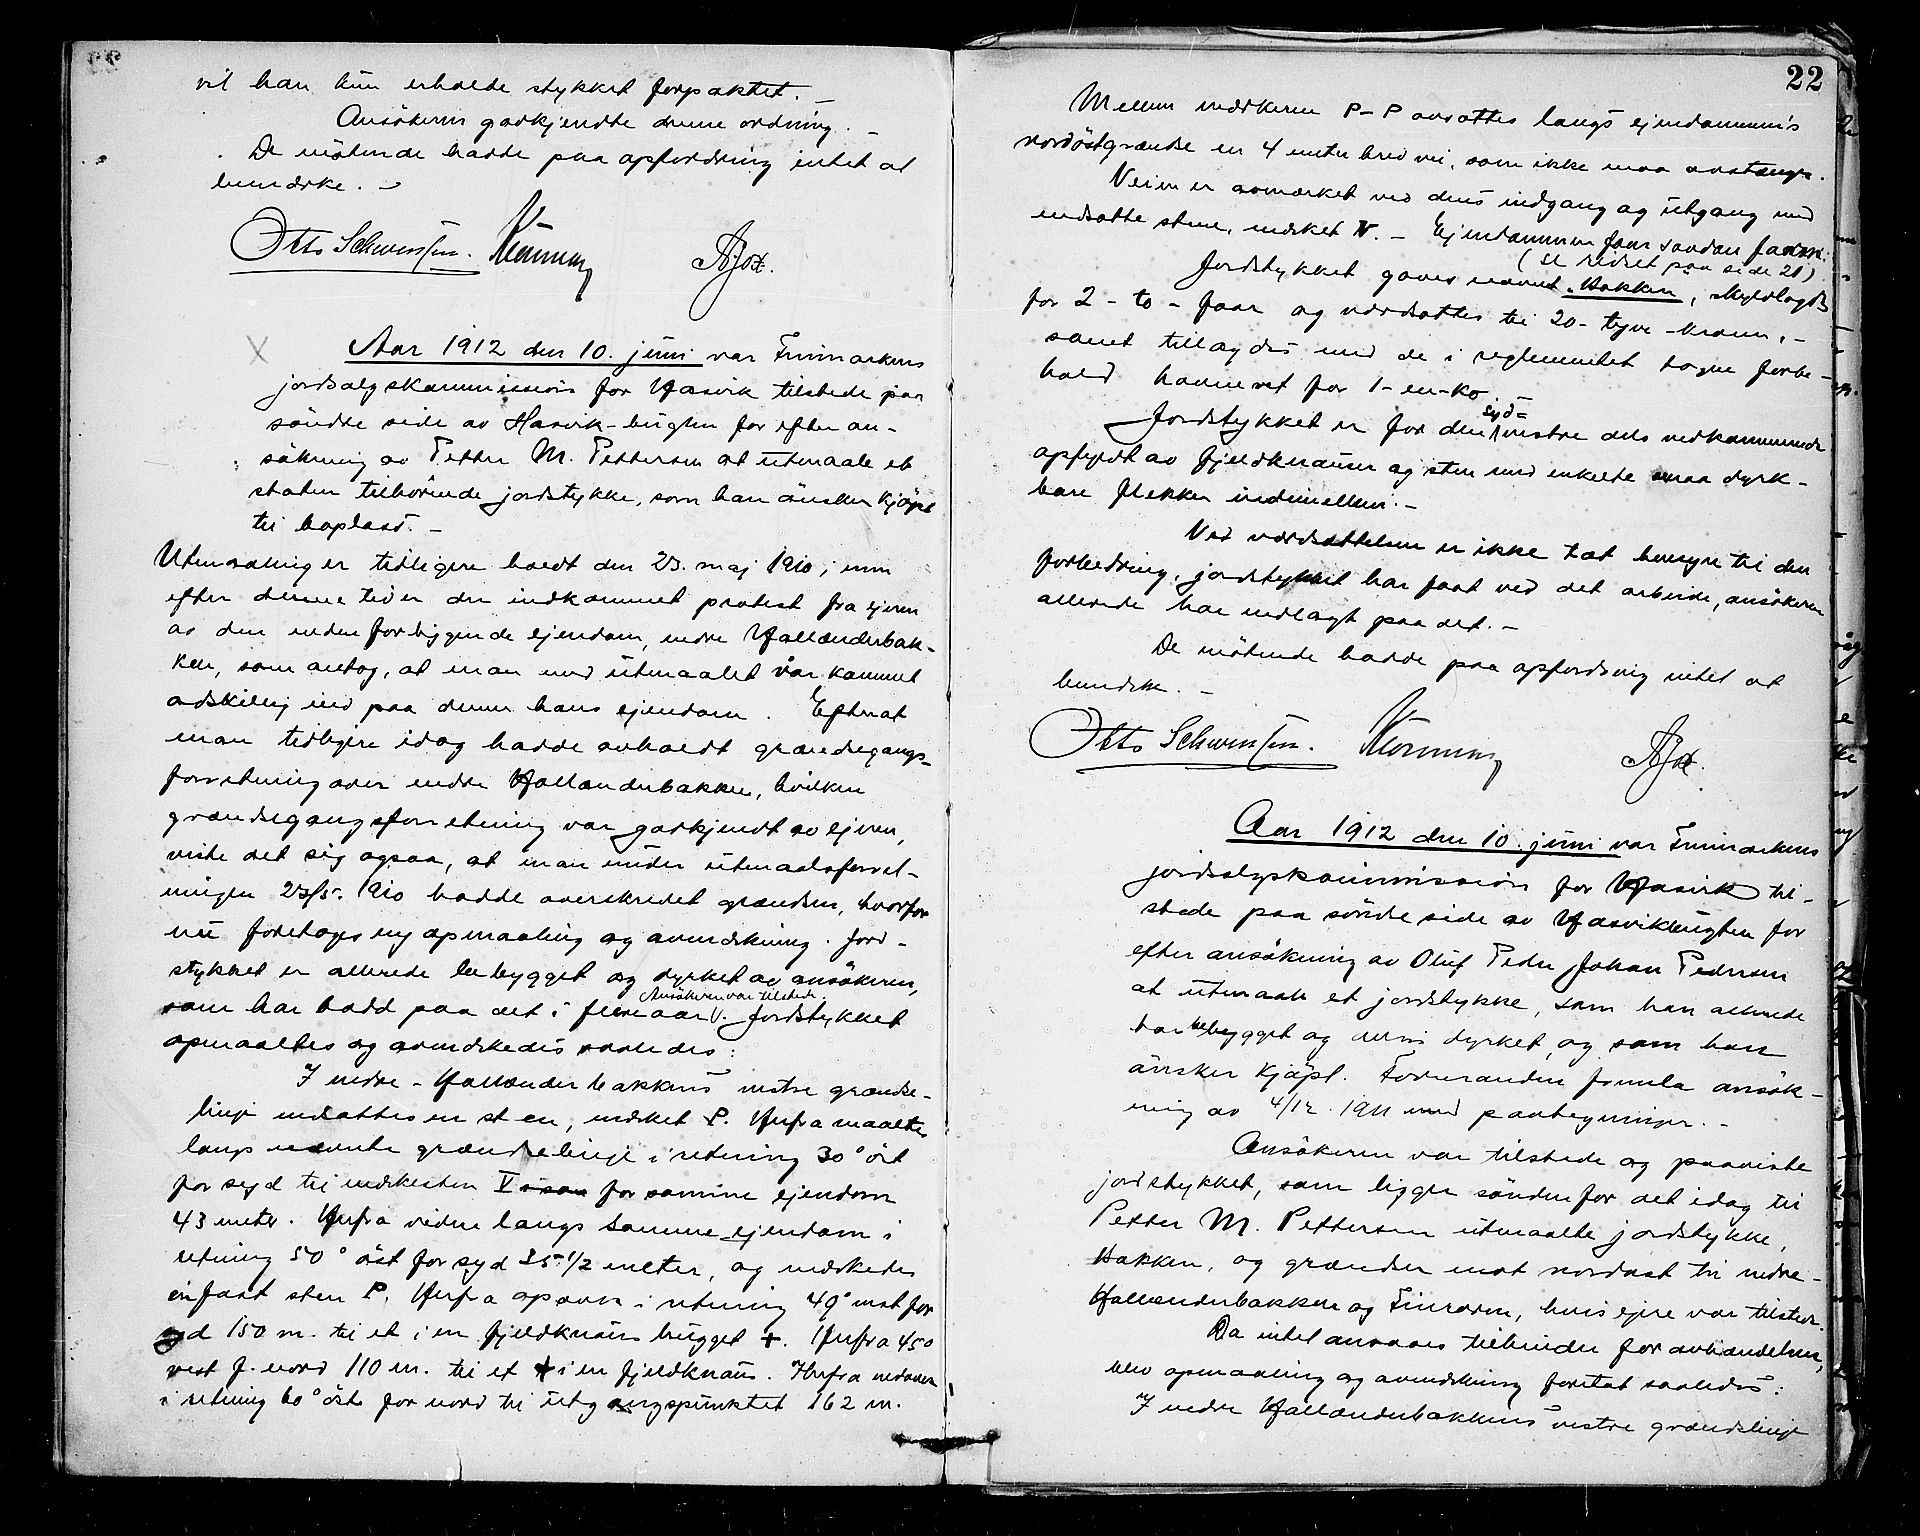 vil han kun erholde stykket forpaktet. —
Ansökeren godkjendte denne ordning. —
De mötende hadde paa opfordring intet at
bemerke. —
Otto Schwensen.
Aar 1912 den 10. juni var Finmarkens
jordsalgskommission for Hasvik tilstede paa
söndre side av Hasvik-bugten for efter an-
sökning av Petter M. Pettersen at utmaale et
staten tilhörende jordstykke, som han önsker kjöpt
til boplads. —
Utmaaling er tidligere holdt den 23. maj 1910; men
efter denne tid er der indkommet protest fra eieren
av den nedenforliggende ejendom, nedre Hollænderbak-
ken, som antog, at man med utmaalet var kommet
adskillig ind paa denne hans ejendom. Efterat
man tidligere idag hadde avholdt grændsegangs-
forretning over nedre Hollænderbakken, hvilken
grændsegangsforretning var godkjendt av ejeren,
viste det sig ogsaa, at man under utmaalsforret-
ningen 23/5. 1910 hadde overskredet grændsen, hvorfor
nu foretoges ny opmaaling og avmerkning. Jord-
stykket er allerede bebygget og dyrket av ansökeren,
Ansökeren var tilstede.
som har bodd paa det i flere aar V. Jordstykket
opmaaltes og avmerkedes saaledes:
I nedre-Hollænderbakkens vestre grændse-
linje nedsattes en sten, merket P. Herfra maaltes
langs nævnte grændselinje i retning 30° öst
for syd til merkesten V for samme ejendom
43 meter. Herfra videre langs samme ejendom i
retning 50° öst for syd 35 1/2 meter, og merkedes
en fast sten P. Herfra opover i retning 49° vest for
syd 150 m. til et i en fjeldknaus hugget +. Herfra 450
vest f. nord 110 m. til et + i en fjeldknaus. Herfra nedover
i retning 60° öst for nord til utgangspunktet 162 m.
22
Mellem merkerne P-P avsattes langs ejendommens
nordöstgrændse en 4 meter bred vei, som ikke maa avstænges.
Veien er avmerket ved dens indgang og utgang med
nedsatte stene, merket V. — Ejendommen faar saadan facon:
(se risset paa side 21)
Jordstykket gaves navnet Bakken, skyldlagdes
for 2 - to - öre og værdsattes til 20 - tyve - kroner, -
samt tillagdes med de i reglementet tagne forbe-
hold havneret for 1-en-ko. —
syd-
Jordstykket er for den V vestre dels vedkommende
opfyldt av fjeldknauser og sten med enkelte smaa dyrk-
bare flekker indimellem. —
Ved værdsættelsen er ikke tat hensyn til den
forbedring, jordstykket har faat ved det arbeide, ansökeren
allerede har nedlagt paa det. —
De mötende hadde paa opfordring intet at
bemerke. —
Otto Schwensen.
Aar 1912 den 10. juni var Finmarkens
jordsalgskommission for Hasvik til-
stede paa söndre side av Hasvikbugten for
efter ansökning av Oluf Peder Johan Pedersen
at utmaale et jordstykke, som han allerede
har bebygget og delvis dyrket, og som han
önsker kjöpt. Foreviste den formelle ansök-
ning av 4/12. 1911 med paategninger. —
Ansökeren var tilstede og paaviste
jordstykket, som ligger söndenfor det idag til
Petter M. Pettersen utmaalte jordstykke,
Bakken, og grændser mot nordost til nedre-
Hollænderbakken og Finroren, hvis ejere var tilstede.
Da intet ansaaes tilhinder for avhændelsen,
blev opmaaling og avmerkning foretat saaledes:
I nedre Hollænderbakkens vestre grændselinje